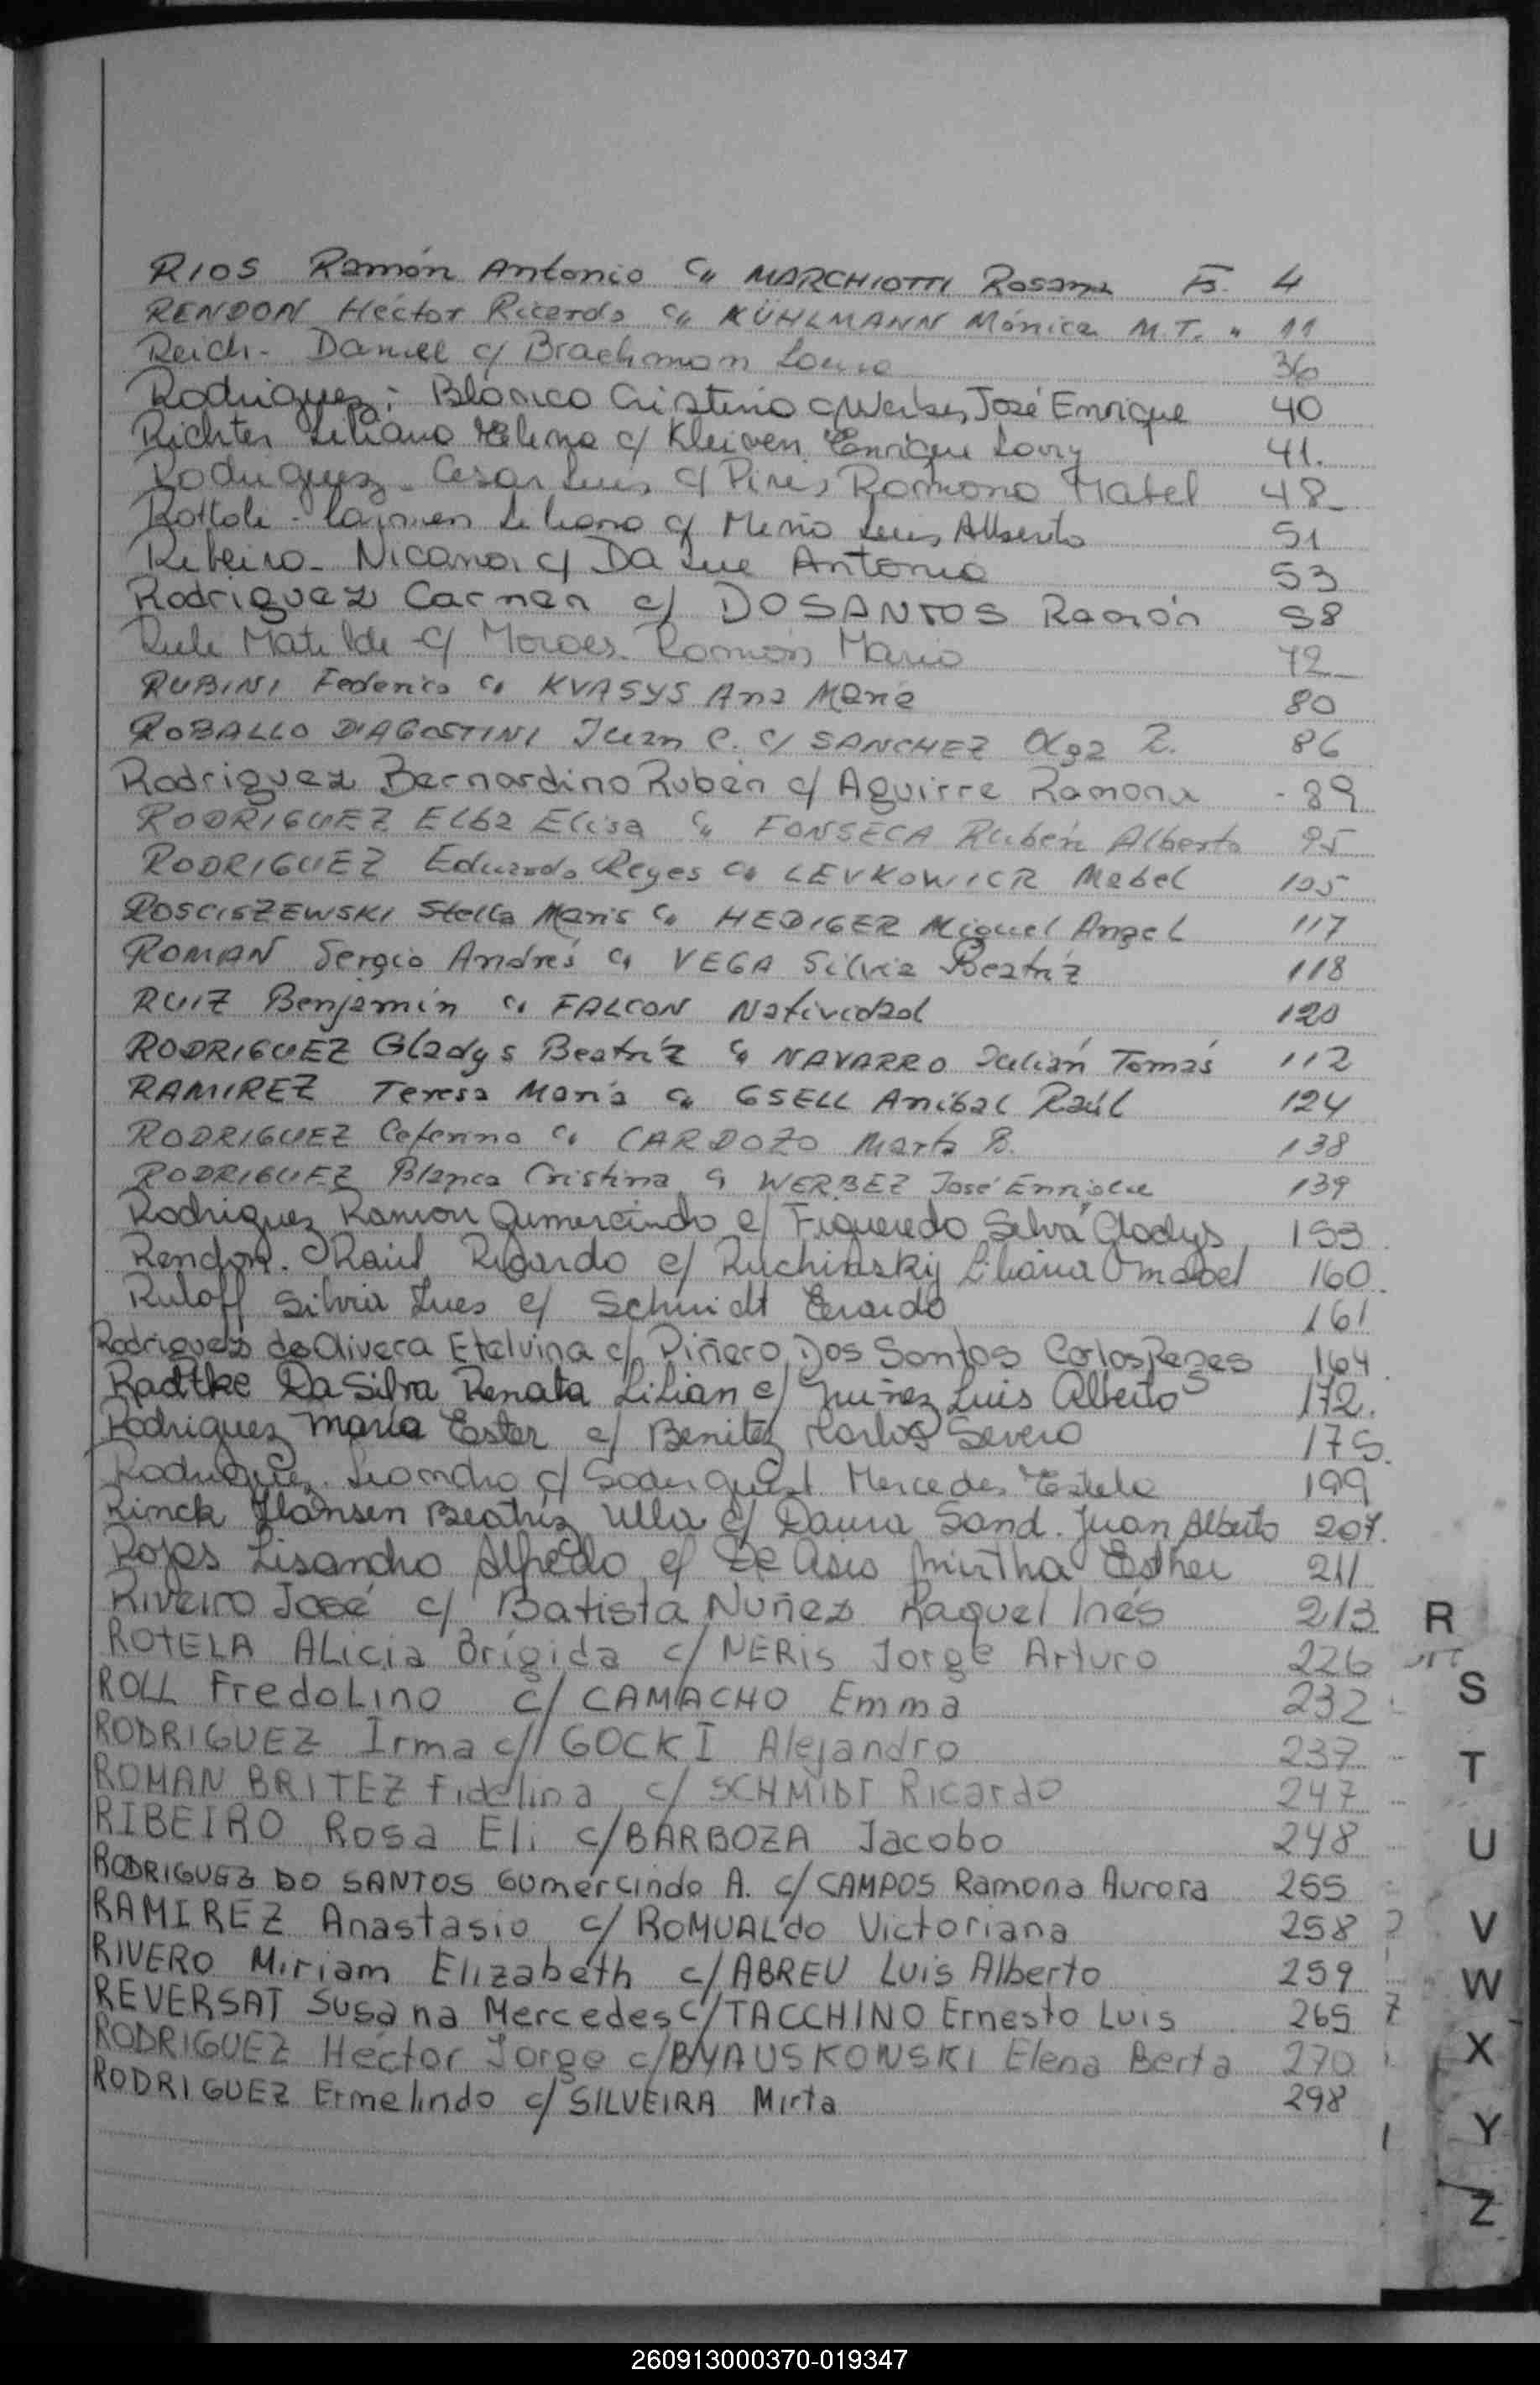 RIOS Ramón Antonio c/ MARCHIOTTI Rosana Fs. 4
RENDON Héctor Ricardo c/ KÜHLMANN Mónica M.T. " 11
Reich - Daniel c/ Brachmon 36
Rodriguez - Blanca Cristina c/ José Enrique 40
Richter Liliana Elena c/ Kleiven Enrique 41.
Rodriguez - Cesar Luis c/ Pires Ramona Mabel 48
Rottoli - Carmen Liliana c/ Luis Alberto 51
Ribeiro - Nicanor c/ Da Luz Antonia 53
Rodriguez Carmen c/ DOSANTOS Ramón 58
Matilde c/ Moraes Ramón Mario 72
RUBINI Federico c/ KVASYS Ana Maria 80
ROBALLO D'AGOSTINI Juan C. c/ SANCHEZ Olga Z. 86
Rodriguez Bernardino Rubén c/ Aguirre Ramona - 89
RODRIGUEZ Elba Elisa c/ FONSECA Rubén Alberto 95
RODRIGUEZ Eduardo Reyes c/ LEVKOWICR Mabel 105
ROSCISZEWSKI Stella Maris c/ HEDIGER Miguel Angel 117
ROMAN Sergio Andrés c/ VEGA Silvia Beatriz 118
RUIZ Benjamín c/ FALCON Natividad 120
RODRIGUEZ Gladys Beatriz c/ NAVARRO Julián Tomás 112
RAMIREZ Teresa María c/ GSELL Aníbal Raúl 124
RODRIGUEZ Ceferino c/ CARDOZO Marta B. 138
RODRIGUEZ Blanca Cristina c/ WERBEZ José Enrique 139
Rodriguez Ramon Gumercindo c/ Figueredo Selva Gladys 153
Rendon. Raúl Ricardo c/ Ruchinsky Liliana Omabel 160
Ruloff Silvia Ines c/ Schmidt Erardo 161
Rodriguez de Olivera Etelvina c/ Piñero Dos Santos Carlos Reges 164
Radtke Da Silva Renata Lilian c/ Nuñez Luis Alberto 172.
Rodriguez María Ester c/ Benitez Carlos Severo 175.
Rodriguez. Leandro c/ Soderquist Mercedes Estela 199
Rinck Hansen Beatriz Ulla c/ Daura Sand. Juan Alberto 207.
Rojas Lisandro Alfredo c/ De Asis Mirtha Esther 211
Riveiro José c/ Batista Nuñez Raquel Inés 213
ROTELA ALicia Brígida c/ NERIS Jorge Arturo 226
ROLL FredoLino c/ CAMACHO Emma 232
RODRIGUEZ Irma c/ GOCKI Alejandro 237
ROMAN BRITEZ Fidelina c/ SCHMIDT Ricardo 247
RIBEIRO Rosa Eli c/ BARBOZA Jacobo 248
RODRIGUEZ DO SANTOS Gumercindo A. c/ CAMPOS Ramona Aurora 255
RAMIREZ Anastasio c/ ROMUALdo Victoriana 258
RIVERO Miriam Elizabeth c/ ABREU Luis Alberto 259
REVERSAT Susana Mercedes c/ TACCHINO Ernesto Luis 265
RODRIGUEZ Héctor Jorge c/ BYAUSKONSKI Elena Berta 270
RODRIGUEZ Ermelindo c/ SILVEIRA Mirta 298
R
S
T
U
V
W
X
Y
Z
260913000370-019347